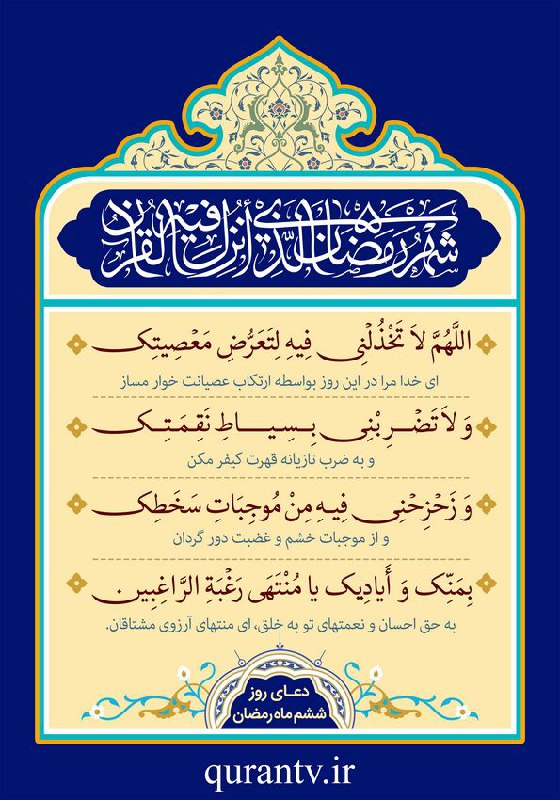 شَهْرُ رَمَضَانَ الَّذِي أُنْزِلَ فِيهِ الْقُرْآنُ
اللَّهُمَّ لاَ تَخْذُلْنِي فِيهِ لِتَعَرُّضِ مَعْصِيَتِک
ای خدا مرا در این روز بواسطه ارتکاب عصیانت خوار مساز
وَ لاَ تَضْرِبْنِی بِسِیَاطِ نَقِمَتِک
و به ضرب تازیانه قهرت کیفر مکن
وَ زَحْزِحْنِی فِیهِ مِنْ مُوجِبَاتِ سَخَطِک
و از موجبات خشم و غضبت دور گردان
بِمَنِّک وَ أَیَادِیک یَا مُنْتَهَی رَغْبَةِ الرَّاغِبِین
به حق احسان و نعمتهای تو به خلق، ای منتهای آرزوی مشتاقان.
دعای روز
ششم ماه رمضان
qurantv.ir